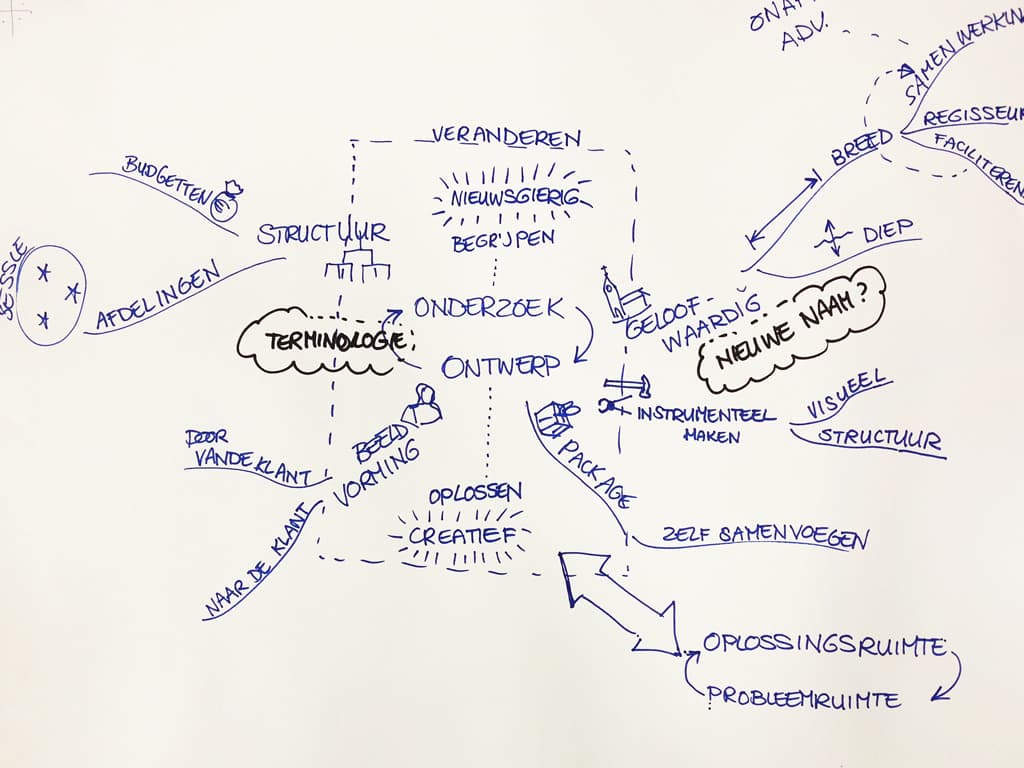 ADV.
SAMENWERKIN
REGISSEUR
FACILITEREN
BREED
DIEP
VERANDEREN
NIEUWSGIERIG
BEGRIJPEN
BUDGETTEN
STRUCTUUR
AFDELINGEN
TERMINOLOGIE
ONDERZOEK
ONTWERP
GELOOF-
WAARDIG
NIEUWE NAAM?
INSTRUMENTEEL
MAKEN
VISUEEL
STRUCTUUR
DOOR
VAN DE KLANT
BEELD
VORMING
NAAR DE KLANT
PACKAGE
OPLOSSEN
CREATIEF
ZELF SAMENVOEGEN
OPLOSSINGSRUIMTE
PROBLEEMRUIMTE